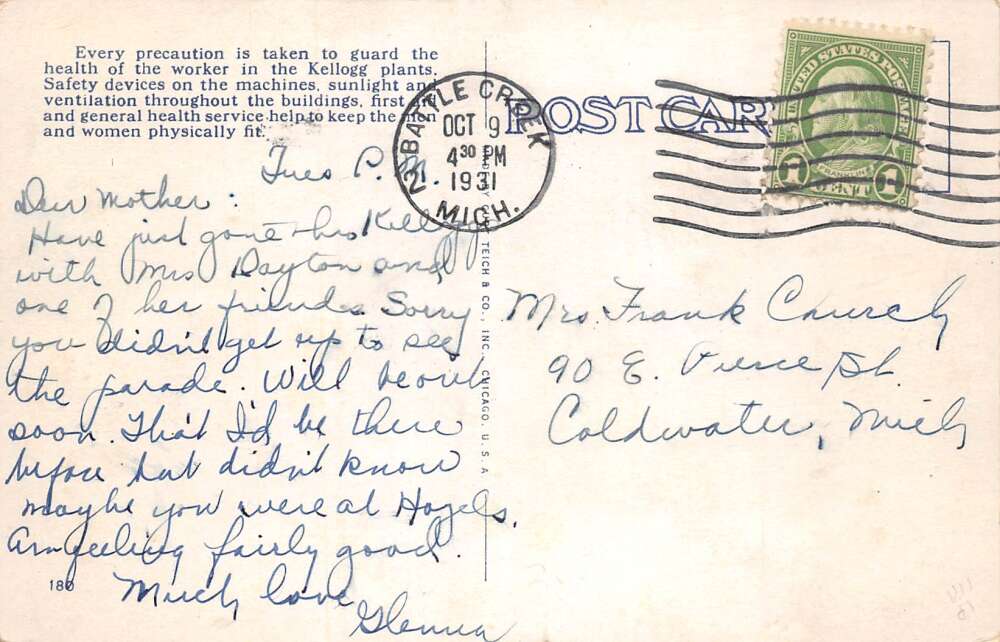 Every precaution is taken to guard the
health of the worker in the Kellogg plants.
Safety devices on the machines, sunlight and
ventilation throughout the buildings, first
and general health service help to keep the
and women physically fit.
POST CAR
BATTLE CREEK
OCT 9
4 30 PM
1931
MICH.
2
UNITED STATES POSTAGE
FRANKLIN
1 CENT 1
Tues P.M.
Dear Mother:
Have just gone thro Kellogg
with Mrs Dayton and
one of her friends. Sorry
you didn't get up to see
the parade. Will be out
soon. Tho't I'd be there
before but didn't know
maybe you were at Hazels.
Am feeling fairly good.
Much love
Glenna
180
TEICH & CO., INC. CHICAGO, U. S. A
Mrs Frank Church
90 E. Pierce St.
Coldwater, Mich